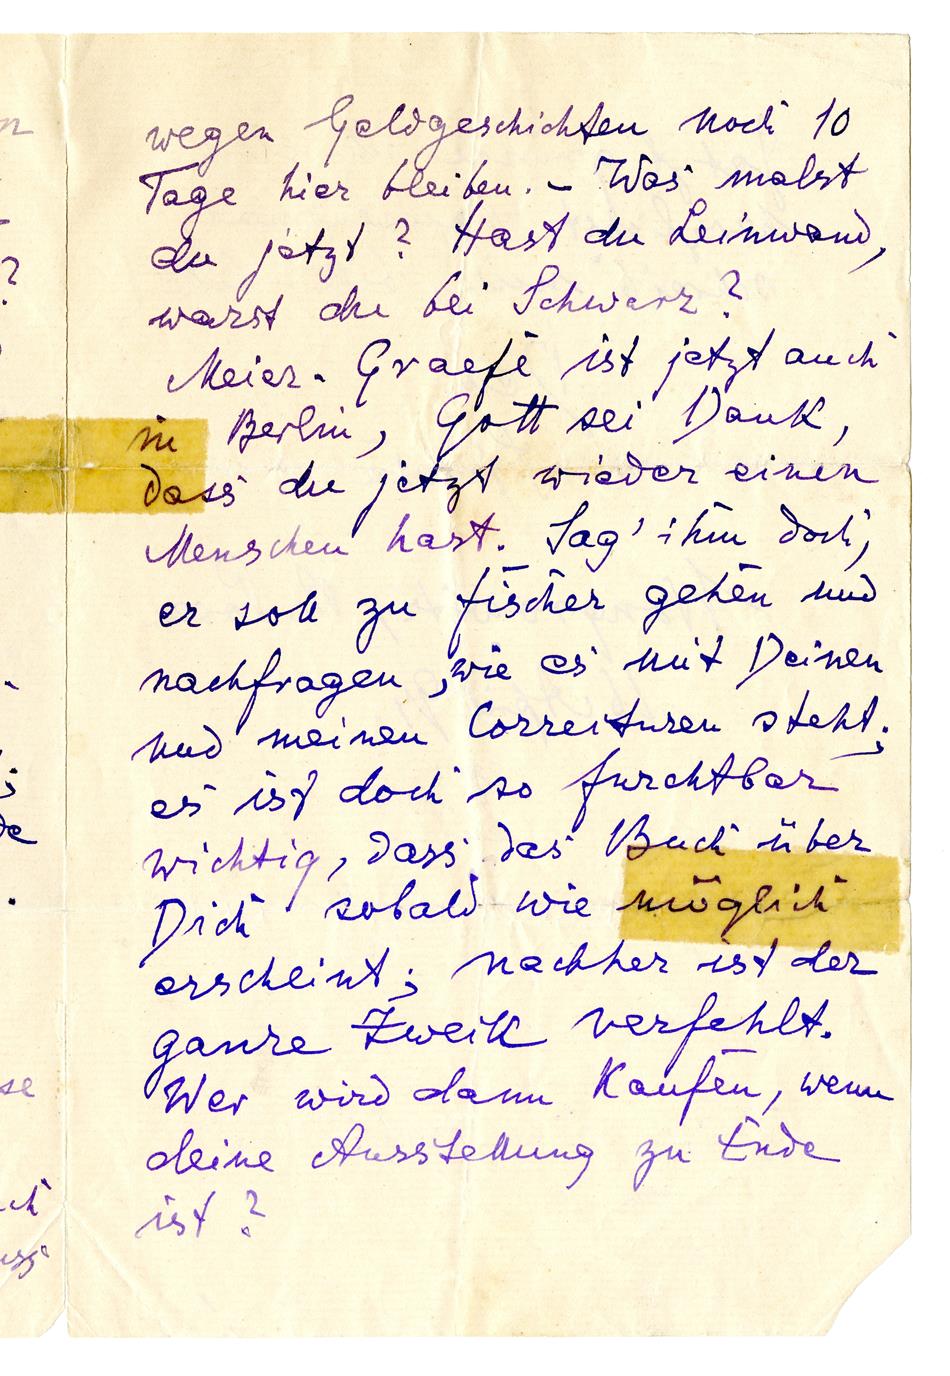 wegen Geldgeschichten noch 10
Tage hier bleiben. – Was malst
du jetzt? Hast du Leinwand,
warst du bei Schwarz?
Meier-Graefe ist jetzt auch
in Berlin, Gott sei Dank,
dass du jetzt wieder einen
Menschen hast. Sag' ihm doch,
er soll zu Fischer gehen und
nachfragen, wie es mit Deinen
und meinen Correcturen steht;
es ist doch so furchtbar
wichtig, dass das Buch über
Dich sobald wie möglich
erscheint; nachher ist der
ganze Zweck verfehlt.
Wer wird dann Kaufen, wenn
deine Ausstellung zu Ende
ist?